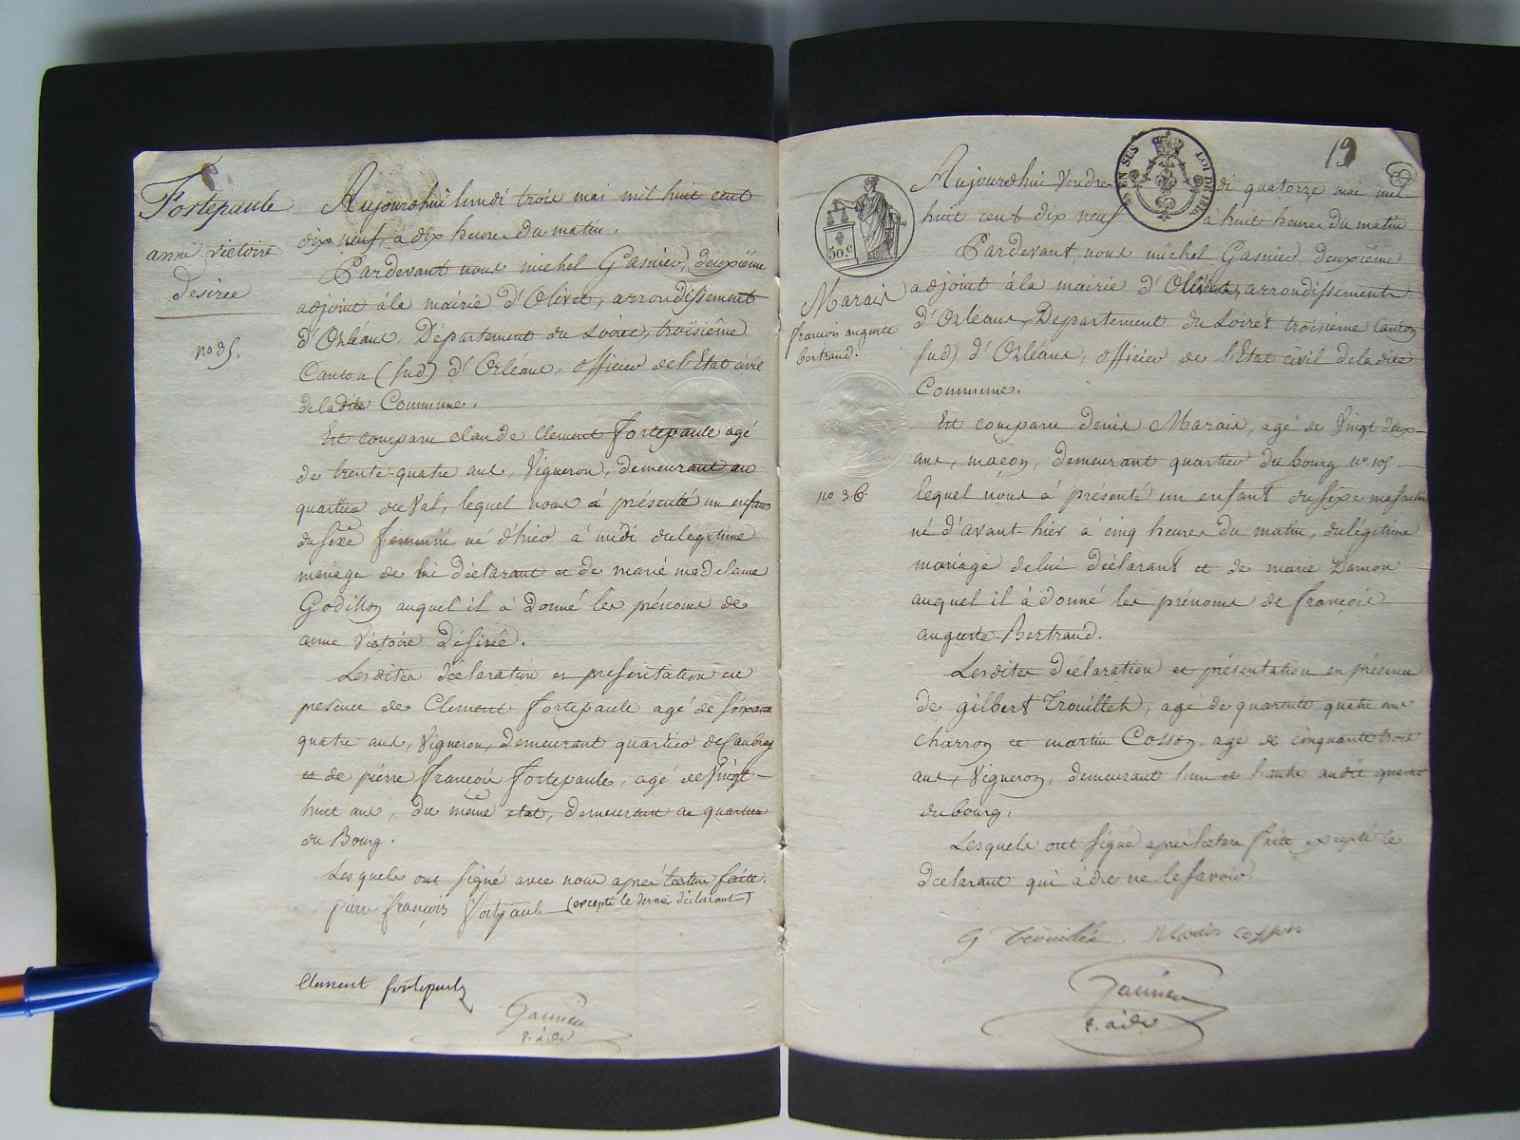 Fortépaule
anne victoire
desirée
no 35.
Aujourdhui lundi trois mai mil huit cent
dix neuf, à dix heures du matin.
Pardevant nous michel Gasnier, deuxième
adjoint à la mairie d'Olivet, arrondissement
d'Orléans, Département du Loiret, troisième
Canton (sud) d'Orléans, officier de l'Etat civil
de ladite Commune.
Est comparu claude Clement Fortepaule agé
de trente-quatre ans, Vigneron, demeurant au
quartier du Val, lequel nous à présenté un enfant
du sexe feminin né d'hier à midi du légitime
mariage de lui déclarant et de marie madelaine
Godillon auquel il à donné les prénoms de
anne Victoire désirée.
Les dites déclaration et présentation en
presence de Clement fortepaule agé de soixante
quatre ans, Vigneron, demeurant quartier de
et de pierre françois fortepaule, agé de Vingt-
huit ans, du même etat, demeurant au quartier
du Bourg.
Lesquels ont signé avec nous après lecture faite.
(excepté le dernier déclarant)
pierre françois fortepaule
Clement fortepaule
Gasnier
19
EN SUS
LOI DE 1816
50.c
Marais
francois auguste
bertrand.
no 36
Aujourdhui Vendredi quatorze mai mil
huit cent dix neuf à huit heures du matin
Pardevant nous michel Gasnier deuxième
adjoint à la mairie d'Olivet, arrondissement
d'Orléans, Département du Loiret troisième Canton
(sud) d'Orléans, officier de l'Etat civil de ladite
Commune.
Est comparu Denis Marais, agé de Vingt deux
ans, maçon, demeurant quartier du bourg no 105
lequel nous à présenté un enfant du sexe masculin
né d'avant-hier à cinq heures du matin, du légitime
mariage de lui déclarant et de marie
auquel il à donné les prénoms de françois
auguste Bertrand.
Les dites déclaration et présentation en présence
de gilbert Trouillet, agé de quarante quatre ans
charron et martin Cosson agé de cinquante trois
ans, Vigneron, demeurant l'un et l'autre audit quartier
du bourg.
Lesquels ont signé après lecture faite excepté le
declarant qui à dit ne le savoir
G Trouillet Martin cosson
Gasnier